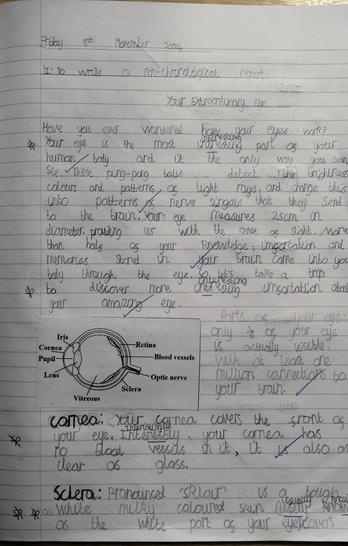 Friday 8th November 2024
LI: To write a non-chronological report.
Your Extraordinary Eye
Have you ever wondered how your eyes work?
interesting
Your eye is the most intresting part of your
human body and it the only way you can
see. These ping-pong balls detect the brightness
colours and patterns of light rays, and change this
into patterns of nerve singals that they send
to the brain. Your eye measures 25cm in
diameter, providing us with the sense of sight. More
than half of your knowledge, imformation and
memories stored in your brain came into your
body through the eye. So let's take a trip
interesting
to discover more intresting imformation about
your amazing eye.
Parts of your eye:
Only of your eye
is actually visible;
with at least one
million connections to
your brain.
Iris
Cornea
Pupil
Lens
Vitreous
Retina
Blood vessels
Optic nerve
Sclera
Cornea: Your cornea covers the front of
interestingly
your eye. Interestly, your cornea has
no blood vessels in it, it is also as
clear as glass.
Sclera: Pronounced is a tough
white milky coloured skin
as the white part of your eye covers